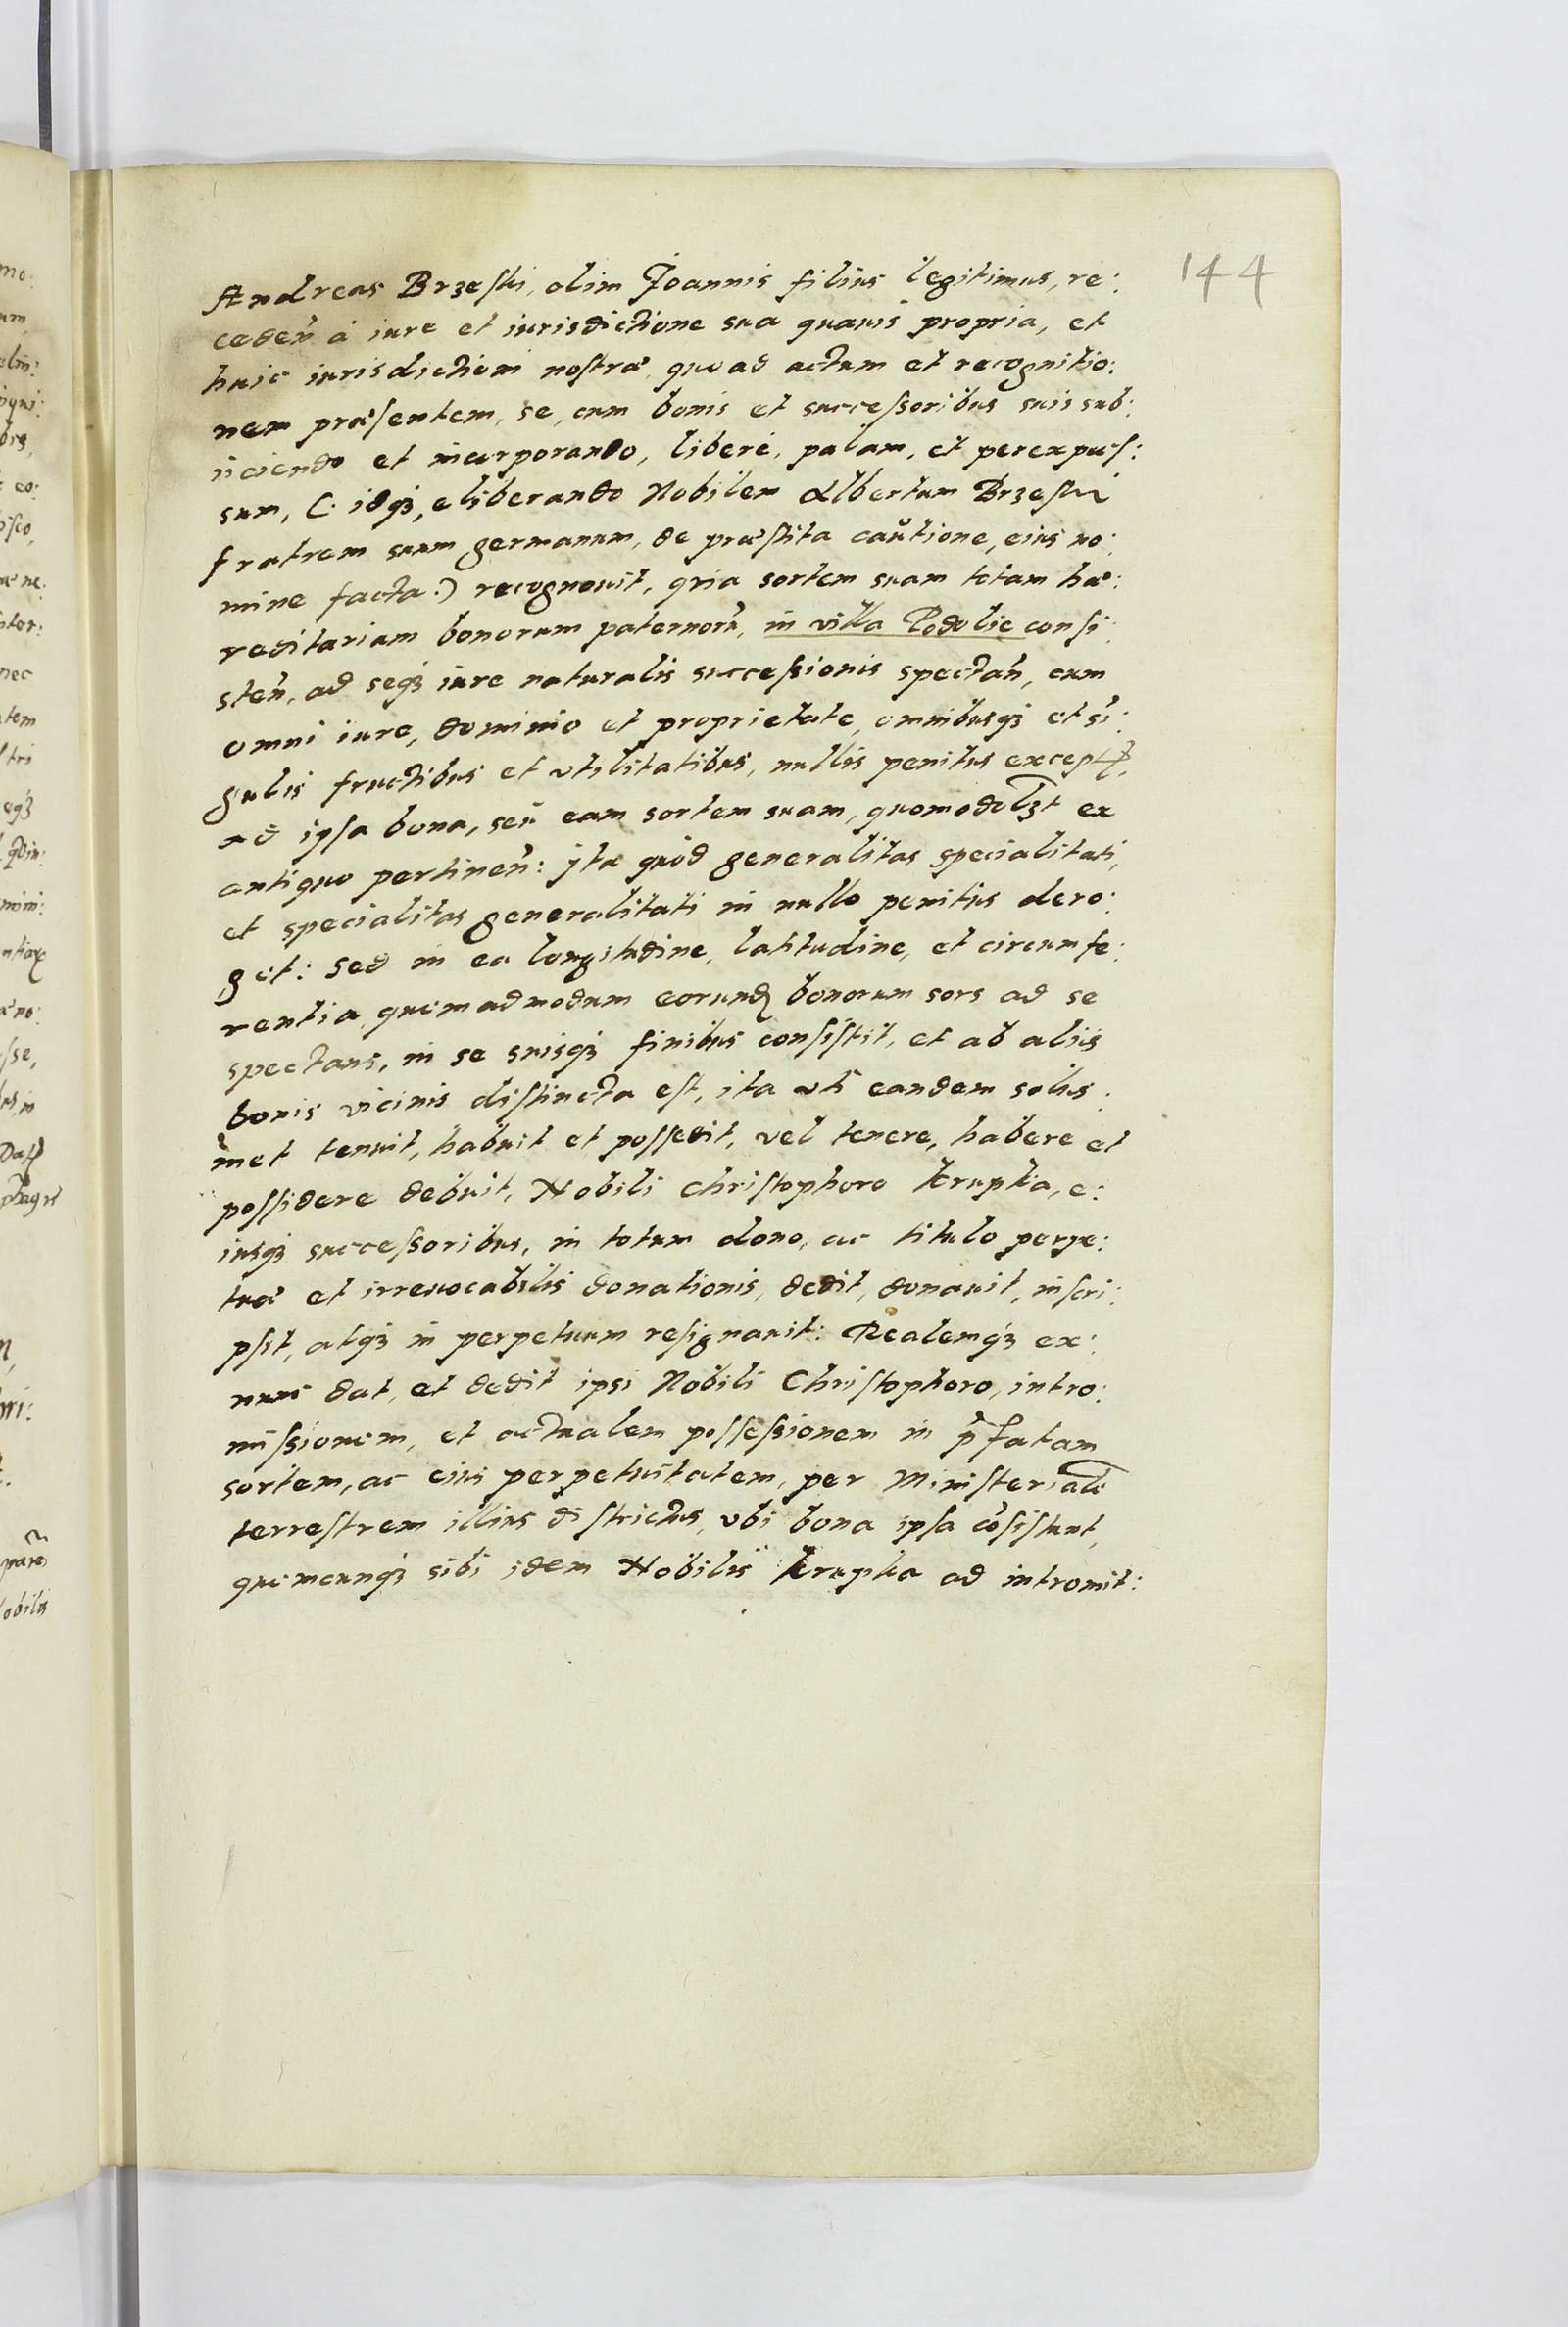 144
Andreas Brzeski, olim Joannis filius legitimus, re:
cedeñ à iure et iurisdictione sua quauis propria, et
huic iurisdictioni nostræ quoad actum et recognitio:
nem præsentem, se, cum bonis et successoribus suis sub:
iiciendo et incorporando, liberè, palam, et per expres:
sum, (: idq3, eliberando Nobilem Albertum Brzeski
fratrem suum germanum, de præstita cautione, eius no:
mine facta:) recognouit, quia sortem suam totam hæ:
reditariam bonorum paternorũ, in villa Podolie consi:
steñ, ad seq3 iure naturalis successionis spectañ, cum
omni iure, dominio et proprietate, omnibusq3 et sĩ:
gulis fructibus et vtilitatibus, nullis penitus except,
ad ipsa bona, seu eam sortem suam, quomodol3t ex
antiquo pertineñ: Ita quòd generalitas specialitati,
et specialitas generalitati in nullo penitus dero:
get: Sed in ea longitudine, latitudine, et circumfe:
rentia quemadmodum eorund bonorum sors ad se
spectans, in se suisq3 finibus consistit, et ab aliis
bonis vicinis distincta est, ita vti eandem solus:
met tenuit, habuit et possedit, vel tenere, habere et
possidere debuit, Nobili Christophoro Krupka, e:
iusq3 successoribus, in totum dono, ac titulo perpe:
tuæ et irreuocabilis donationis, dedit, donauit, inscri:
psit, atq3 in perpetuum resignauit: Realemq3 ex:
nunc dat, et dedit ipsi Nobili Christophoro, intro:
missionem, et actualem possessionem in p̃fatam
sortem, ac eius perpetuitatem, per Ministerialẽ
terrestrem illius districtus, vbi bona ipsa cõsistunt,
quemcunq3 sibi idem Nobilis Krupka ad intromit: